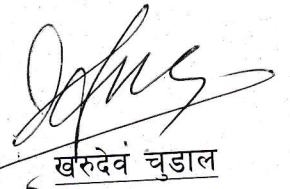 खरुदेवं चुडाल